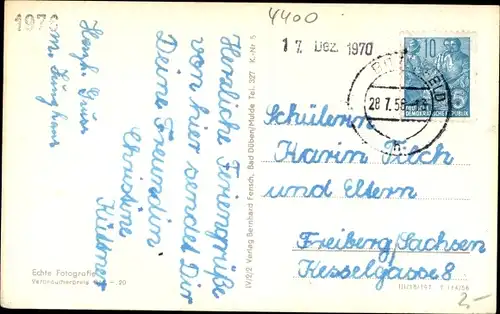 4400
1970
17. Dez. 1970
10
DEUTSCHE
DEMOKRATISCHE REPUBLIK
28.7.58
h
Herzliche Feriengrüße
von hier sendet Dir
Deine Freundin
Christine
Küttner
Herzl.
u. M.
Schülerin
Karin Filch
und Eltern
Freiberg/Sachsen
Kesselgasse 8
Echte Fotografie
Verbraucherpreis
IV/2/2 Verlag Bernhard Fensch, Bad Düben/Mulde Tel. 327 K-Nr 5
2,-